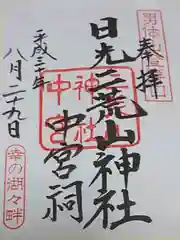 奉拝
日光二荒山神社
中宮祠
平成三十年
八月二十九日
幸の湖々畔